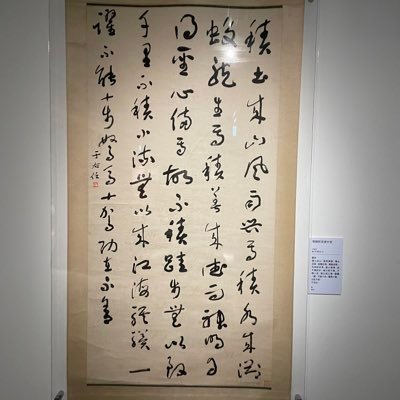 積土成山風雨興焉積水成淵
蛟龍生焉積善成德而神明自
得聖心備焉故不積跬步無以致
千里不積小流無以成江海騏驥一
躍不能十步駑馬十駕功在不舍
于右任